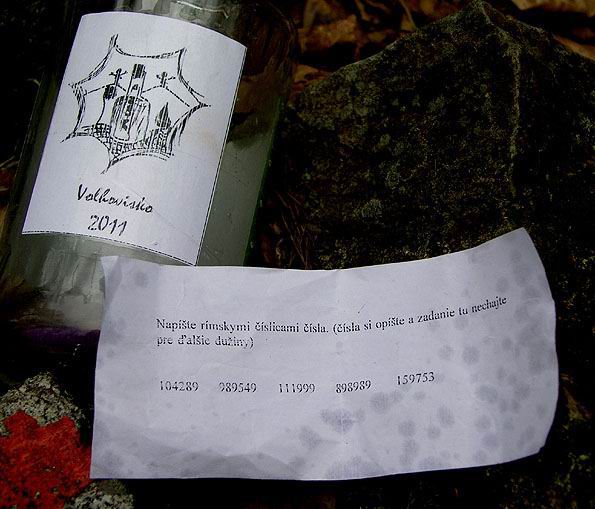 Volkovisko
2011
Napíšte rímskymi číslicami čísla. (čísla si opíšte a zadanie tu nechajte
pre ďalšie dužiny)
104289 989549 111999 898989 159753